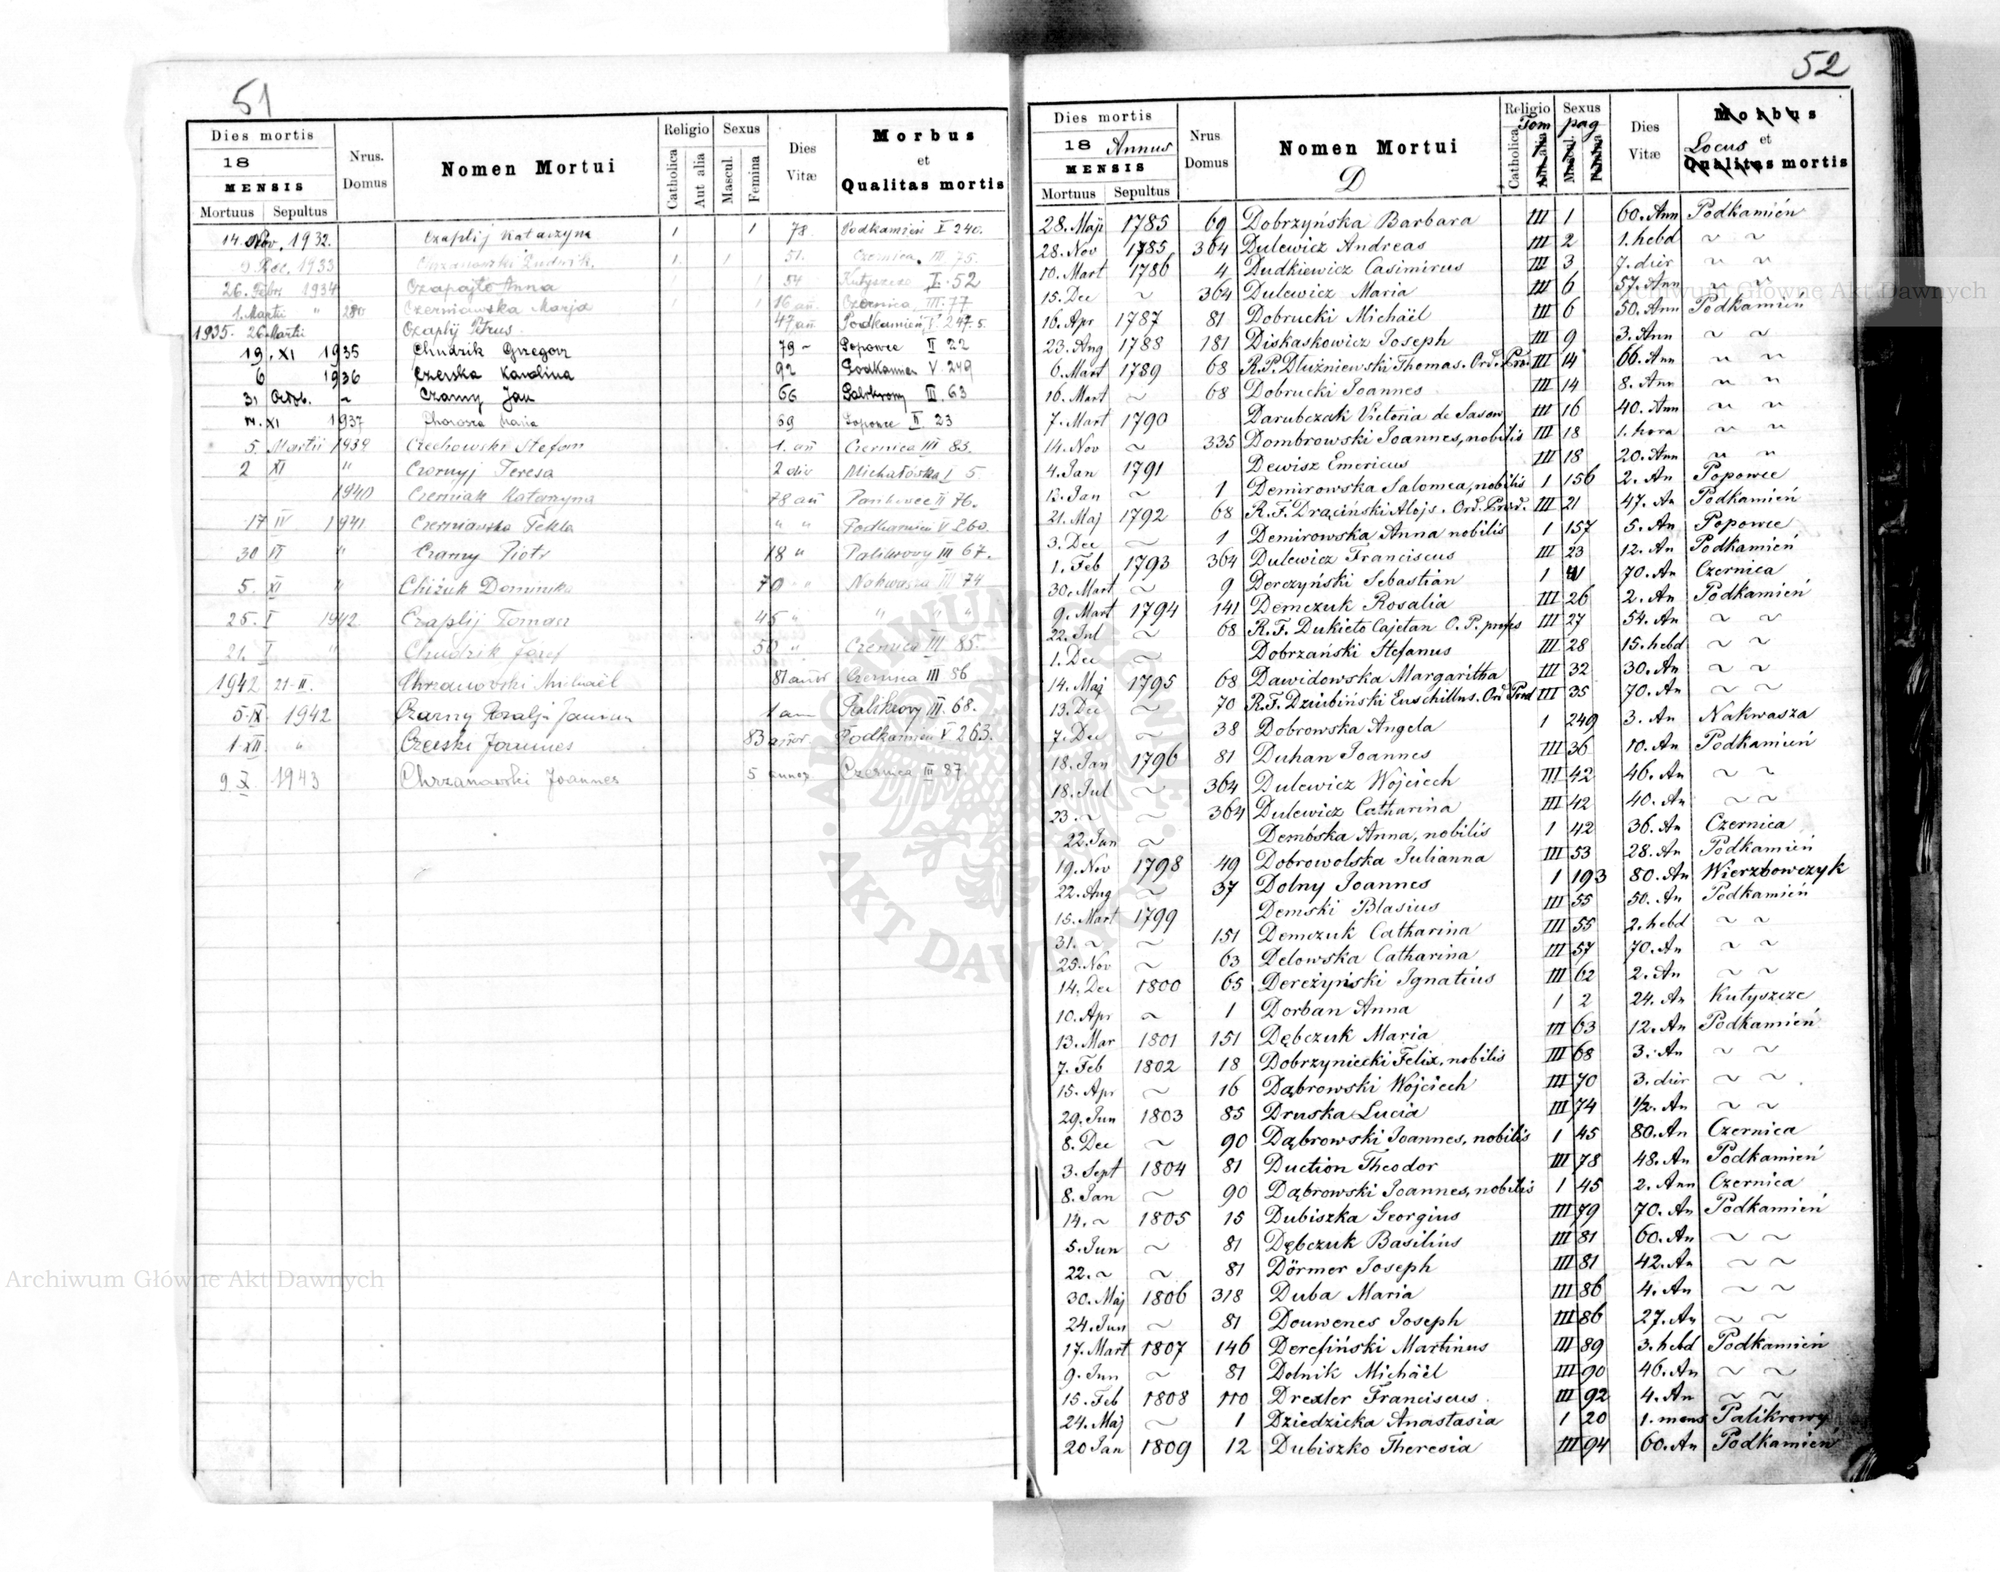 51
Dies mortis
18
MENSIS
Mortuus Sepultus
Nrus. Domus
Nomen Mortui
Religio
Catholica
Aut alia
Sexus
Mascul.
Femina
Dies Vitæ
Morbus
et
Qualitas mortis
14 Nov. 1932. Czaplij Katarzyna 1 1 78 Podkamień V 240.
1933 Chrzanowski Ludwik. 1 1 51. Czernica. III. 75.
26. Febr 1934 Czapajto Anna 54 Kutyszcze I. 52
1. Martii " 280 Czerniawska Marja 16 an. Czernica III. 77
1935. 26 Martii Czaplij Petrus. 47 an Podkamień V. 247.
19. XI 1935 Chudzik Grzegorz 79 ~ Popowce II 22
6 1936 Czerska Karolina 92 Podkamień V. 249
31 Octob. ~ Czarny Jan 66 Palikrowy III. 63
XI 1937 Maria 69 Popowce II 23
5. Martii 1939 Czechowski Stefan 1. an Czernica III 83.
2 XI " Czornyj Teresa 2 die Michałówka I 5.
1940 Czerniak Katarzyna 78 an Pańkowce II 76.
17 IV 1941 Czerniawska Tekla " " Podkamień V 260.
30 VI " Czarny Piotr 18 " Palikrowy III 67.
5. XI " Chiżuk Dominika 70 " Nakwasza III 74
25. I 1942 Czaplij Tomasz 45 " " " "
21. I " Chudzik Józef 50 " Czernica III 85.
1942 21-II. Chrzanowski Michaël 81 Czernica III 86
5. IX 1942 Czarny Rozalja 1 an Palikrowy III. 68.
1. XII " Czerski Joannes 83 annor Podkamień V 263.
9. X. 1943 Chrzanowski Joannes 5 annor Czernica III 87.
52
Dies mortis
18 Annus
MENSIS
Mortuus Sepultus
Nrus Domus
Nomen Mortui
D
Religio
Tom
Catholica
Aut alia
Sexus
pag
Mascul.
Femina
Dies Vitæ
Morbus
et
Locus
Qualitas mortis
28. Maji 1785 69 Dobrzyńska Barbara III 1 60. Ann Podkamień
28. Nov 1785 364 Dulewicz Andreas III 2 1. hebd ~ ~
10. Mart 1786 4 Dudkiewicz Casimirus III 3 7. dier ~ ~
15. Dec ~ 364 Dulewicz Maria III 6 57. Ann ~ ~
16. Apr 1787 81 Dobrucki Michaël III 6 50. Ann Podkamień
23. Aug 1788 181 Diskaskowicz Joseph III 9 3. Ann ~ ~
6. Mart 1789 68 R.P. Dłużniewski Thomas. Ord. Pred. III 14 66. Ann ~ ~
16. Mart ~ 68 Dobrucki Joannes III 14 8. Ann ~ ~
7. Mart 1790 Darubczak Victoria de Sasow III 16 40. Ann ~ ~
14. Nov ~ 335 Dombrowski Joannes, nobilis III 18 1. hora ~ ~
4. Jan 1791 Dewisz Emericus III 18 20. Ann ~ ~
12. Jan ~ 1 Demirowska Salomea, nobilis 1 156 2. An Popowce
21. Maj 1792 68 R.F. Drąciński Alojs. Ord. Præd. III 21 47. An Podkamień
3. Dec ~ 1 Demirowska Anna nobilis 1 157 5. An Popowce
1. Feb 1793 364 Dulewicz Franciscus III 23 12. An Podkamień
30. Mart ~ 9 Derczyński Sebastian 1 41 70. An Czernica
9. Mart 1794 141 Demczuk Rosalia III 26 2. An Podkamień
22. Jul ~ 68 R.F. Dukieto Cajetan O.P. profes III 27 54. An ~ ~
1. Dec ~ Dobrzański Stefanus III 28 15. hebd ~ ~
14. Maj 1795 68 Dawidowska Margaritha III 32 30. An ~ ~
13. Dec ~ 70 R.F. Dziubiński Euschillus. Ord Pred III 35 70. An ~ ~
7. Dec ~ 38 Dobrowska Angela 1 249 3. An Nakwasza
18. Jan 1796 81 Duhan Joannes III 36 10. An Podkamień
18. Jul ~ 364 Dulewicz Wojciech III 42 46. An ~ ~
23. ~ ~ 364 Dulewicz Catharina III 42 40. An ~ ~
22. Jan ~ Dembska Anna, nobilis 1 42 36. An Czernica
19. Nov 1798 49 Dobrowolska Julianna III 53 28. An Podkamień
22. Aug ~ 37 Dolny Joannes 1 193 80. An Wierzbowczyk
15. Mart 1799 Demski Blasius III 55 50. An Podkamień
31. ~ ~ 151 Demczuk Catharina III 55 2. hebd ~ ~
25. Nov ~ 63 Delowska Catharina III 57 70. An ~ ~
14. Dec 1800 65 Dereżyński Ignatius III 62 2. An ~ ~
10. Apr ~ 1 Dorban Anna 1 2 24. An Kutyszcze
13. Mar 1801 151 Dębczuk Maria III 63 12. An Podkamień
7. Feb 1802 18 Dobrzyniecki Felix, nobilis III 68 3. An ~ ~
15. Apr ~ 16 Dąbrowski Wojciech III 70 3. dier ~ ~
29. Jun 1803 85 Druska Lucia III 74 1/2. An ~ ~
8. Dec ~ 90 Dąbrowski Joannes, nobilis 1 45 80. An Czernica
3. Sept 1804 81 Duction Theodor III 78 48. An Podkamień
8. Jan ~ 90 Dąbrowski Joannes, nobilis 1 45 2. Ann Czernica
14. ~ 1805 15 Dubiszka Georgius III 79 70. An Podkamień
5. Jun ~ 81 Dębczuk Basilius III 81 60. An ~ ~
22. ~ ~ 81 Dörmer Joseph III 81 42. An ~ ~
30. Maj 1806 318 Duba Maria III 86 4. An ~ ~
24. Jun ~ 81 Douwenes Joseph III 86 27. An ~ ~
17. Mart 1807 146 Derefiński Martinus III 89 3. hebd Podkamień
9. Jun ~ 81 Dolnik Michäel III 90 46. An ~ ~
15. Feb 1808 110 Drexler Franciscus III 92 4. An ~ ~
24. Maj ~ 1 Dziedzicka Anastasia 1 20 1. mens Palikrowy
20 Jan 1809 12 Dubiszko Theresia III 94 60. An Podkamień
Archiwum Główne Akt Dawnych
Archiwum Główne Akt Dawnych
ARCHIWUM GŁÓWNE AKT DAWNYCH